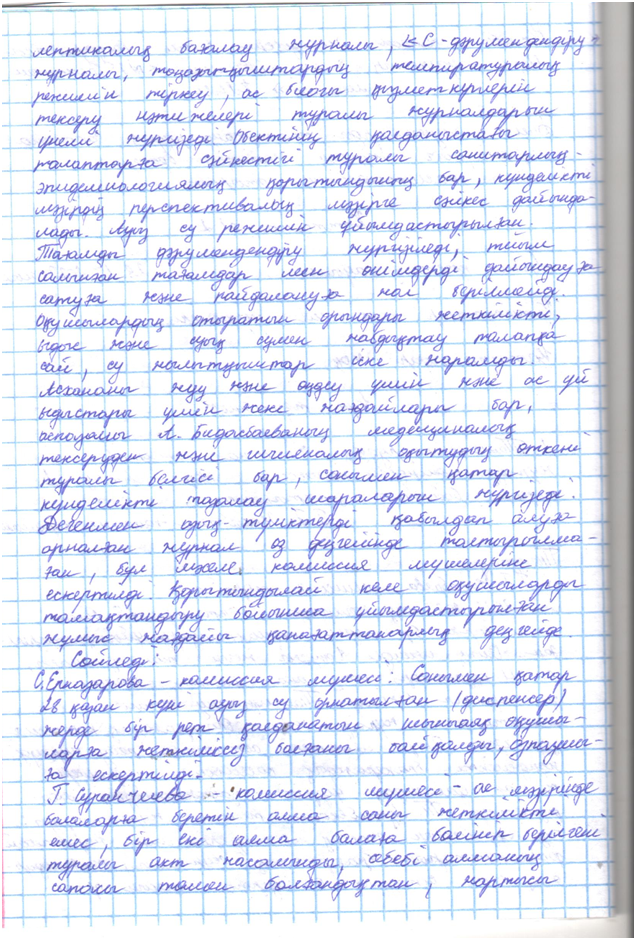 лептикалық бағалау журналы, «С-дәрумендендіру»
журналы, тоңазытқыштардың температуралық
режимін тіркеу, ас блогы қызметкерлерін
тексеру нәтижелері туралы журналдарын
үнемі жүргізеді. Обьектінің қолданыстағы
талаптарға сәйкестігі туралы санитарлық-
эпидемиологиялық қорытындының бар, күнделікті
мәзірдің перспективалық мәзірге сәйкес дайында-
лады. Ауыз су режимін ұйымдастырылған.
Тағамды дәрумендендіру жүргізіледі, тыйым
салынған тағамдар мен өнімдерді дайындауға
сатуға және пайдалануға жол берілмейді.
Оқушылардың отыратын орындары жеткілікті,
ыдыс және суық сумен жабдықтау талапқа
сай, су жылытқыштар іске жарамды.
Асхананы жуу және өңдеу үшін және ас үй
ыдыстары үшін жеке жағдайлары бар,
аспазшы А. Бидасбаеваның медициналық
тексеруден және гигиеналық оқытудың өткені
туралы белгісі бар, сонымен қатар
күнделікті тазалау шараларын жүргізеді.
Дегенмен азық-түліктерді қабылдап алуға
арналған журнал өз деңгейінде толтырылма-
ған, бұл мәселе комиссия мүшелеріне
ескертілді. Қорытындылай келе оқушыларды
тамақтандыру бойынша ұйымдастырылған
жұмыс жағдайы қанағаттанарлық деңгейде.
Сөйледі:
С. Ерназарова – комиссия мүшесі: Сонымен қатар
28 қазан күні ауыз су орнатылған (диспенсер)
жерде бір рет қолданатын шыныаяқ оқушы-
ларға жеткіліксіз болғаны байқалды, аспазшы-
ға ескертілді.
Г. Суранчиева – комиссия мүшесі – ас мәзірінде
балаларға беретін алма саны жеткілікті
емес, бір екі алма балаға бөлініп берілгені
туралы акт жасалынды, себебі алманың
сапасы төмен болғандықтан, жартысы